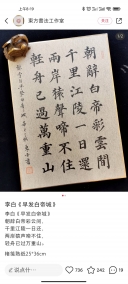 上午8:19
東方書法工作室
朝辭白帝彩雲間
千里江陵一日還
兩岸猿聲啼不住
輕舟已過萬重山
1/2
李白《早发白帝城》
李白《早发白帝城》
朝辞白帝彩云间,
千里江陵一日还。
两岸猿声啼不住,
轻舟已过万重山。
楷書熟纸25*36cm
说点什...
736
242
18